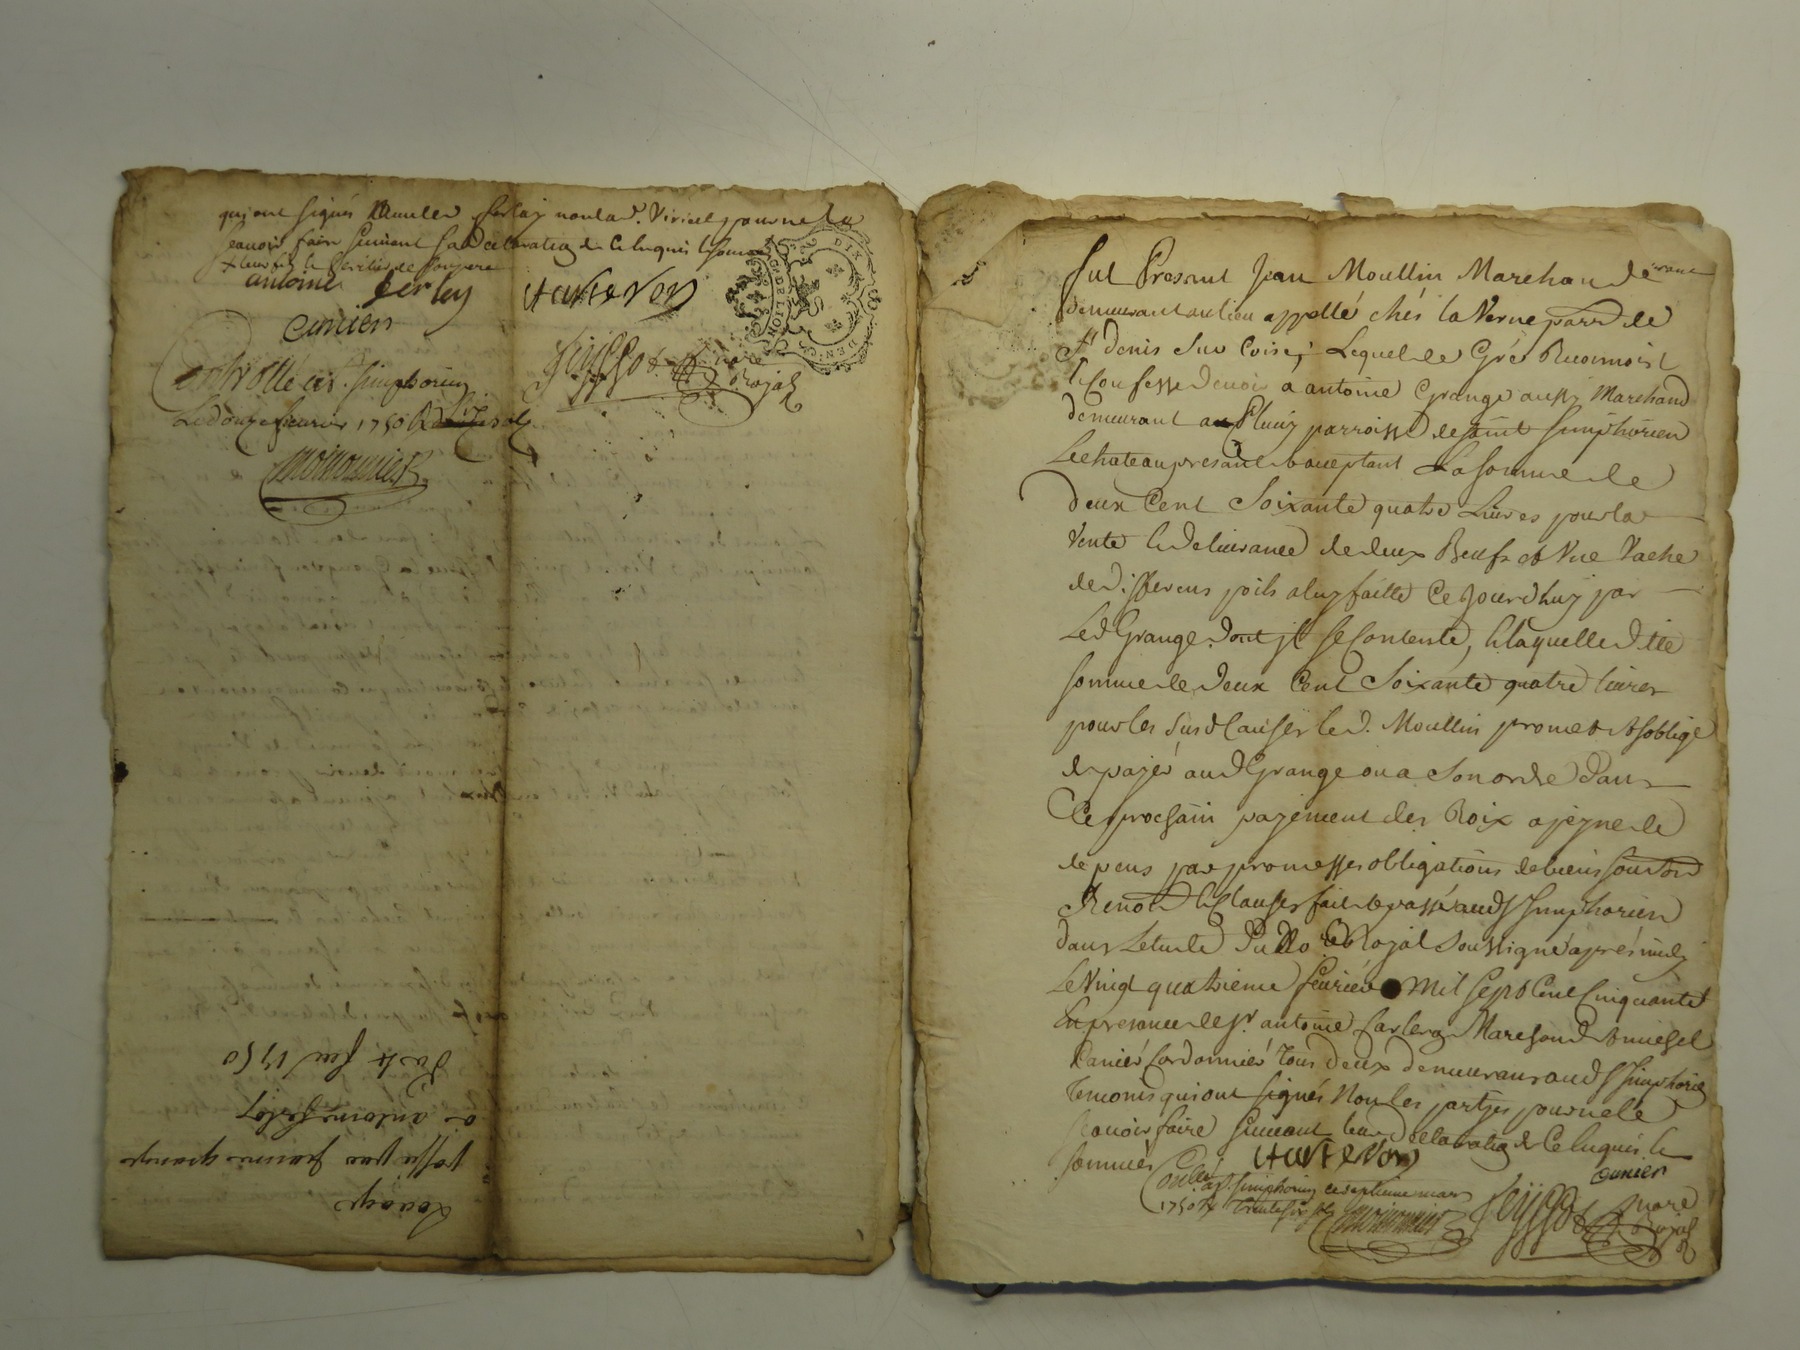 qui ont signés
scavoir faire suivant sa declaration de ce enquis et sommé
antoine ferley
cunier
Controllé a St. Simphorien
Le douze feurier 1750
GNALDELION
DIX DENIERS
Nore
Royal
Du 4 feu 1750
a antoine ferley
passé par
Louage
fut Present Jean Moullin Marchand
demeurant au lieu appellé chés la Verne parr de
St denis Sur Coise, Lequel de Gré Reconnoist
et Confesse devoir a antoine Grange aussy Marchand
demeurant au Pluvy parroisse de saint Simphorien
Lechateau present acceptant La somme de
deux Cent Soixante quatre Livres pour la
Vente et delivrance de deux Beufs et Vne Vache
de differens poils a luy faitte Ce Jourdhuy par
Led Grange dont jl se Contente, et laquelle ditte
somme de deux Cent Soixante quatre livres
pour les Susd Causes led. Moullin promet et soblige
de payer aud Grange ou a son ordre dans
Le prochain payement des Roix a peyne de
depens par promesses obligations de biens
Renon et Clauses fait et passé aud St Simphorien
dans Letude Du No Royal Soussigné aprés midy
Le Vingt quatrieme feurier Mil Sept Cent Cinquante
En presence de Sr. antoine Marchand et michel
Cunier Cordonnier tous deux demeurans aud St Simphorien
temoins qui ont signés Non les partyes pour ne le
scavoir faire suivant leur declaration de Ce enquis et
sommés
cunier
Collé a St. Simphorien ce septieme mars
1750
Nore
Royal